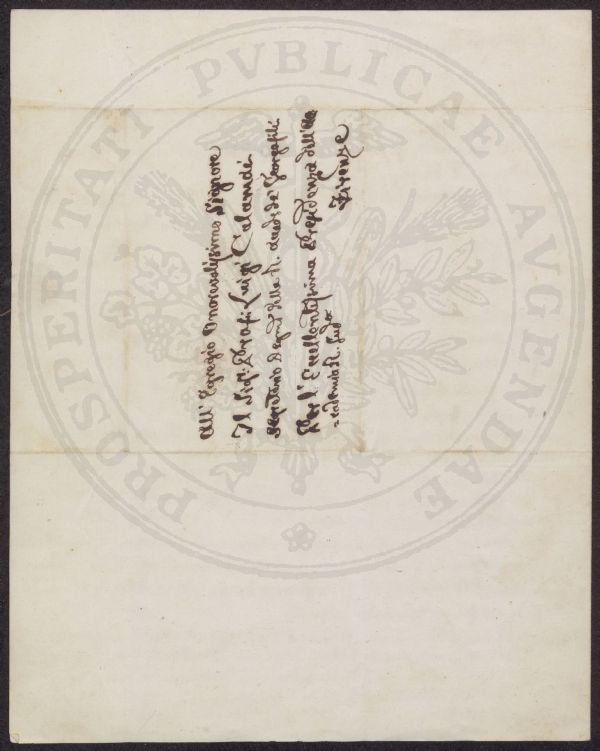 PROSPERITATI PVBLICAE AVGENDAE
All' Egregio Onorevolissimo Signore
Il Sigr. Prof. Luigi Calamai
Segretario degli della R. Accad. de' Georgofili
Per l' Eccellentissima Presidenza dell' Ac
=cademia R. Sud.a
Firenze